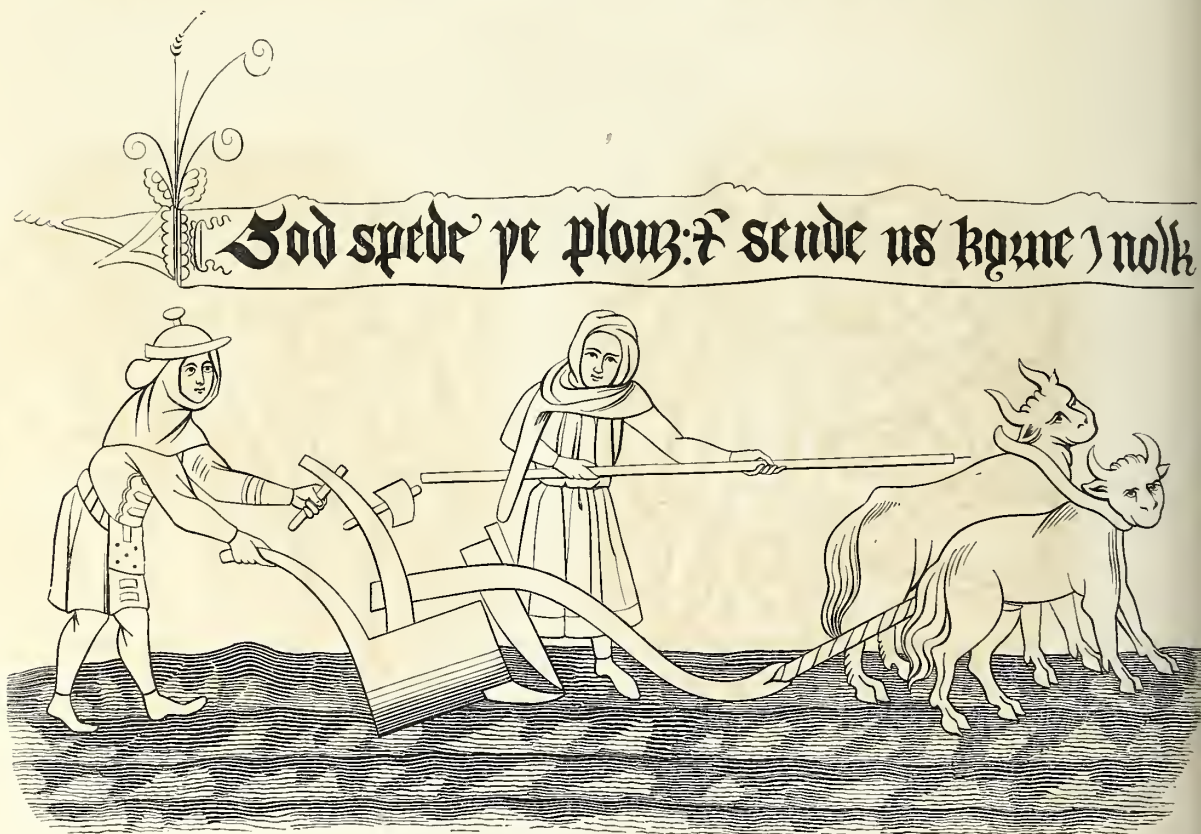 God spede ye plouȝ: & sende us korne ) nolk